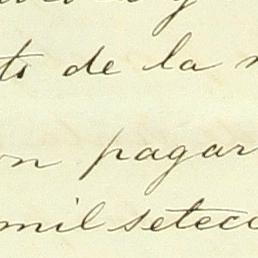 to de la
n pagar
mil setec